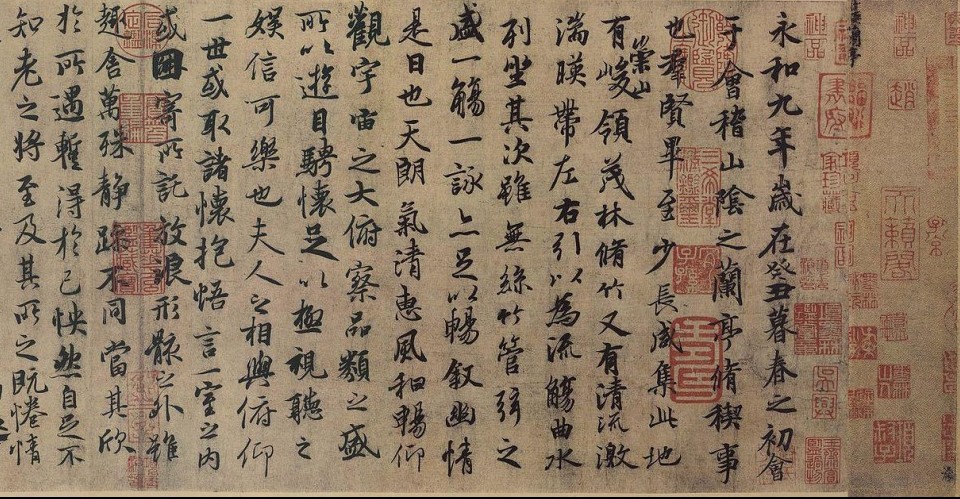 神品
天籟閣
神品
永和九年歲在癸丑暮春之初會
于會稽山陰之蘭亭脩稧事
也羣賢畢至少長咸集此地
有崇山峻領茂林脩竹又有清流激
湍暎帶左右引以為流觴曲水
列坐其次雖無絲竹管弦之
盛一觴一詠亦足以暢敘幽情
是日也天朗氣清惠風和暢仰
觀宇宙之大俯察品類之盛
所以遊目騁懷足以極視聽之
娛信可樂也夫人之相與俯仰
一世或取諸懷抱悟言一室之內
或因寄所託放浪形骸之外雖
趣舍萬殊靜躁不同當其欣
於所遇暫得於己怏然自足不
知老之將至及其所之既惓情